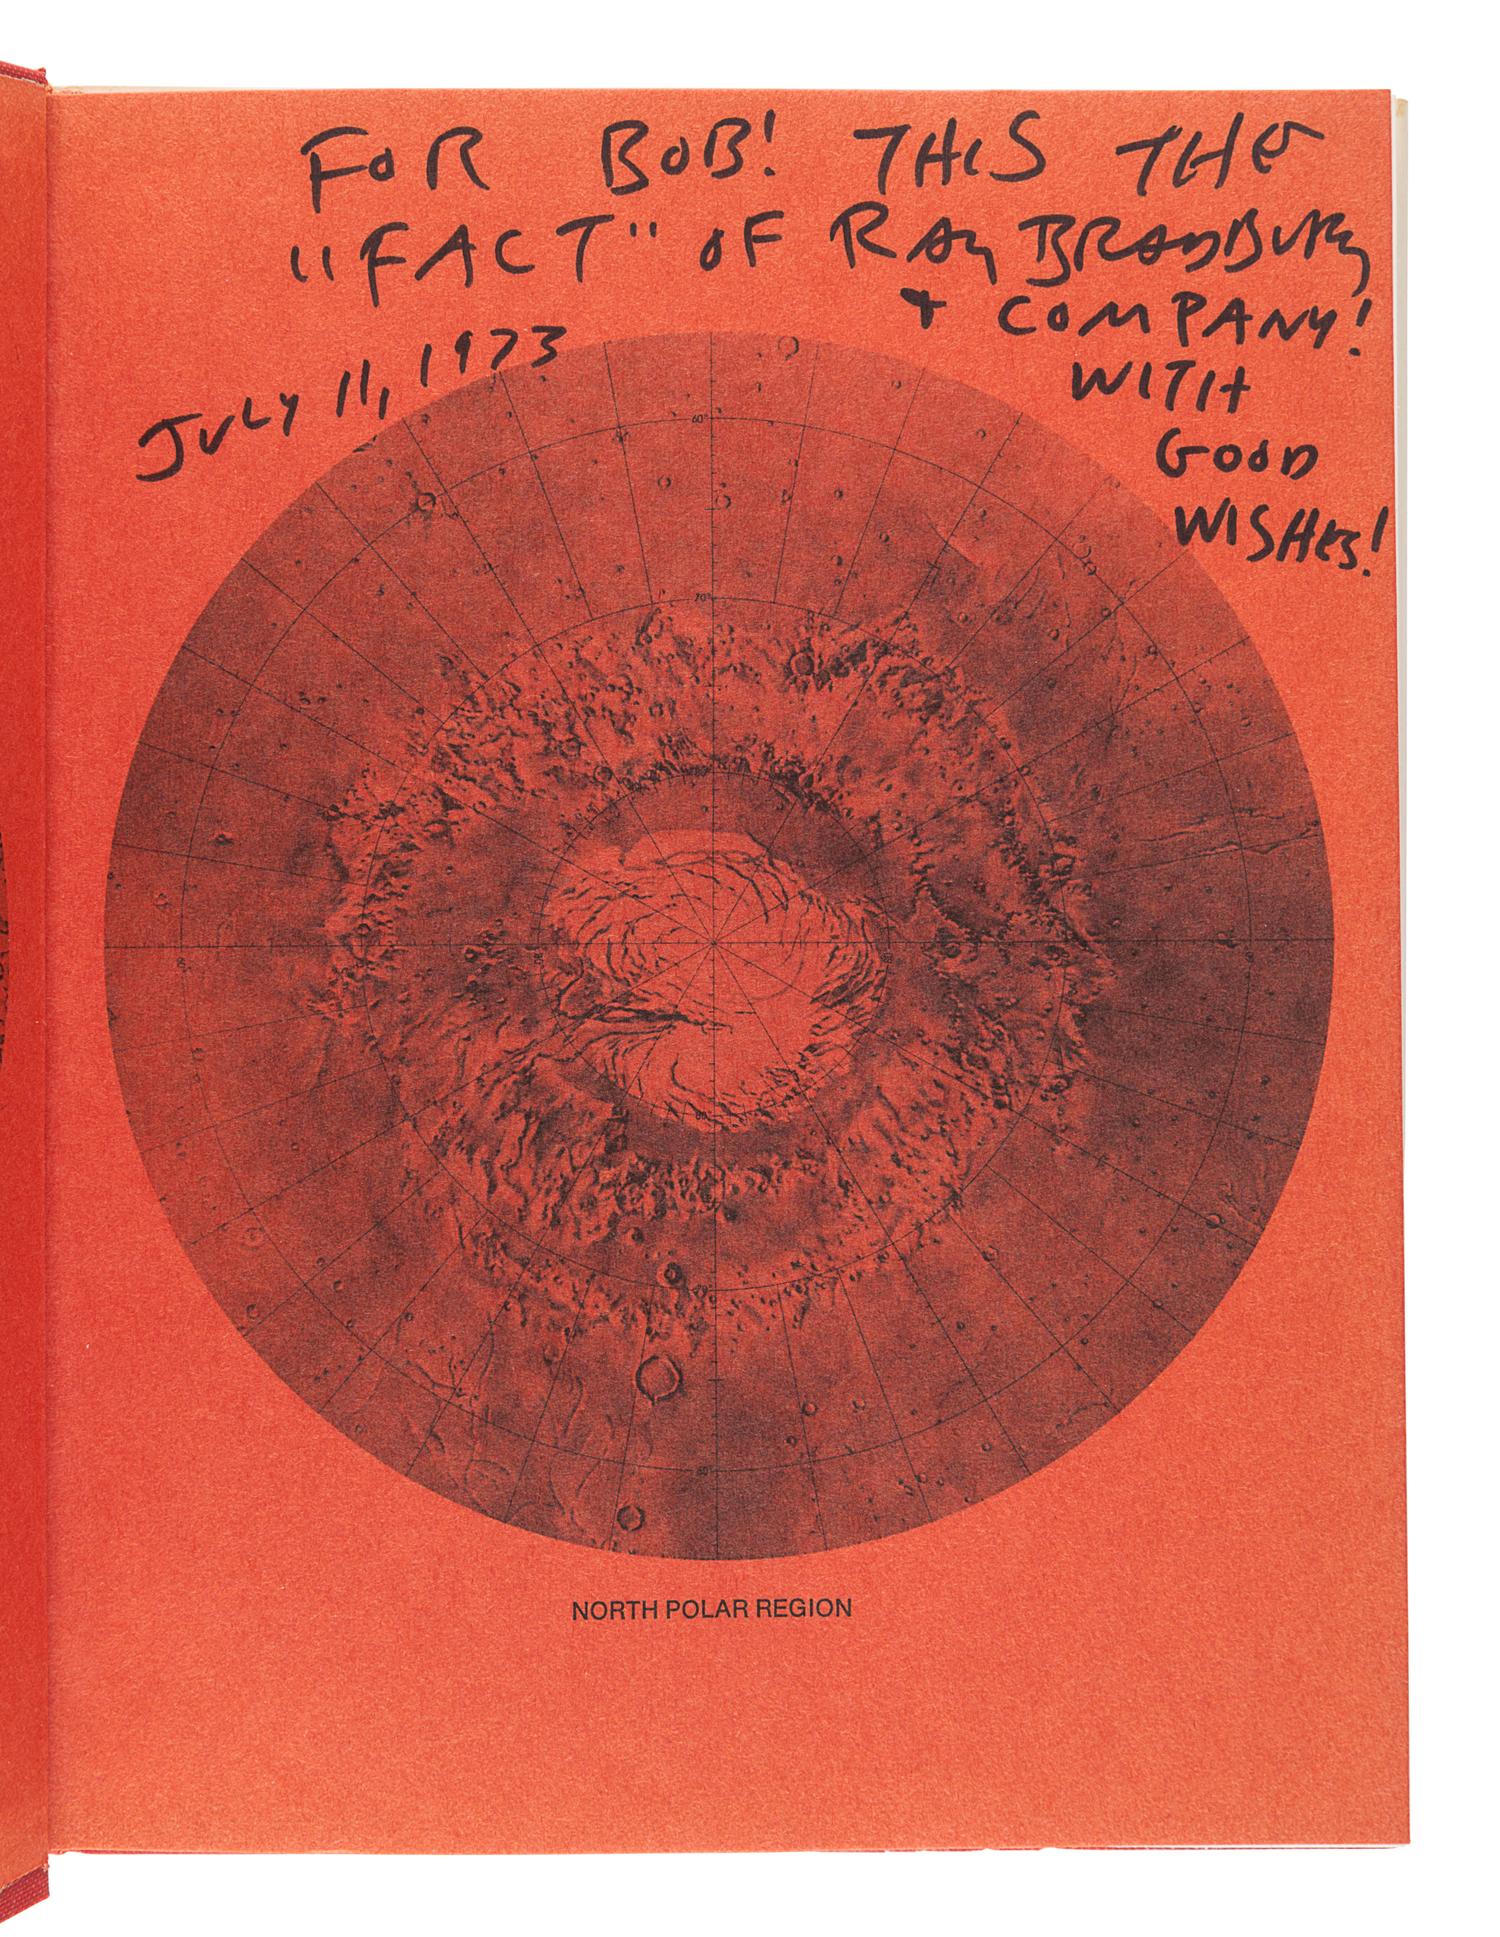 FOR BOB! THIS THE
"FACT" OF RAY BRADBURY
+ COMPANY!
WITH
GOOD
WISHES!
JULY 11, 1973
60°
70°
80°
NORTH POLAR REGION